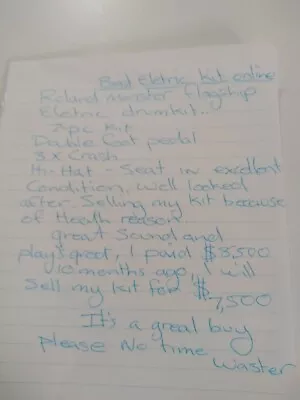 Band Eletric kit online
Roland monster flagship
Electric drumkit..
7pc kit
Double foot pedal
3 x Crash
Hi-Hat - Seat in excellent
Condition, well looked
after. Selling my kit because
of Heath reason.
great Sound and
plays great, I paid $8,500
10 months ago, I will
Sell my kit for $
7,500
It's a great buy
please No time
waster